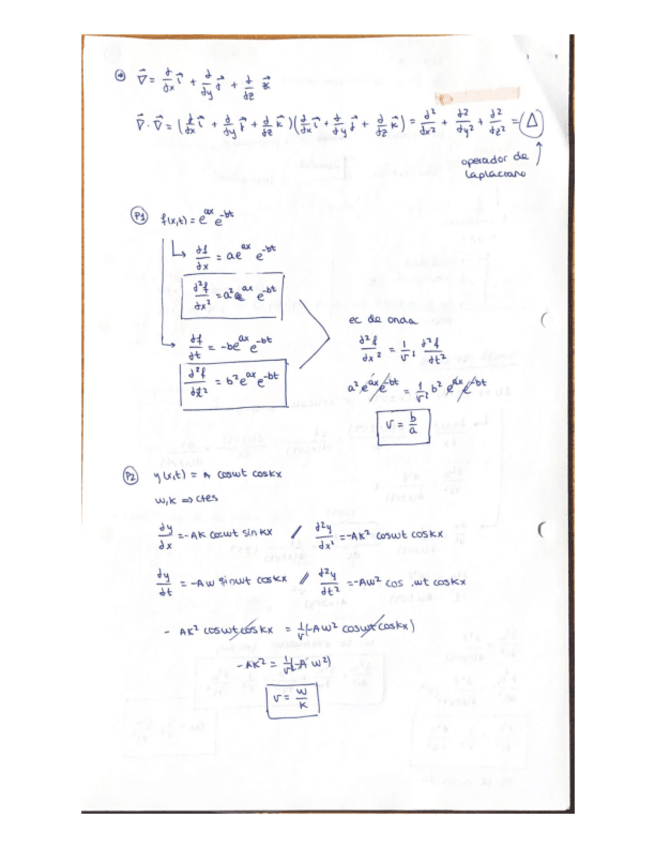 → ∇⃗ = d/dx i⃗ + d/dy j⃗ + d/dz k⃗
∇⃗ · ∇⃗ = (d/dx i⃗ + d/dy j⃗ + d/dz k⃗)(d/dx i⃗ + d/dy j⃗ + d/dz k⃗) = d²/dx² + d²/dy² + d²/dz² = Δ
operador de
Laplaciano
P1 f(x,t) = e^ax e^-bt
df/dx = ae^ax e^-bt
d²f/dx² = a²e^ax e^-bt
df/dt = -be^ax e^-bt
d²f/dt² = b²e^ax e^-bt
ec de onda
d²f/dx² = 1/v² d²f/dt²
a² e^ax e^-bt = 1/v² b² e^ax e^-bt
v = b/a
P2 y(x,t) = A coswt coskx
w,k ⇒ ctes
dy/dx = -AK coswt sinkx / d²y/dx² = -AK² coswt coskx
dy/dt = -Aw sinwt coskx // d²y/dt² = -Aw² cos wt coskx
- AK² coswt coskx = 1/v² (-Aw² coswt coskx)
- AK² = 1/v² (-A w²)
v = w/k